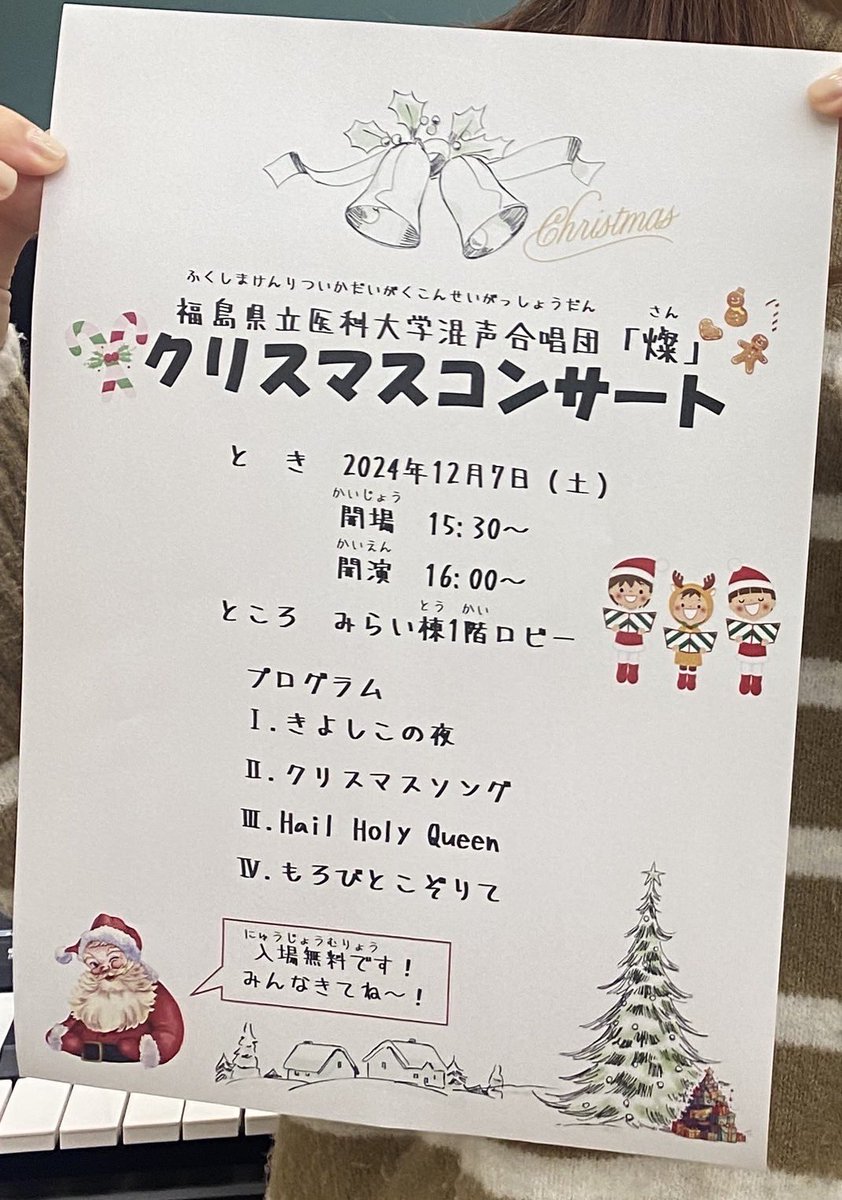 Christmas
ふくしまけんりついかだいがくこんせいがっしょうだん さん
福島県立医科大学混声合唱団「燦」
クリスマスコンサート
とき 2024年12月7日(土)
かいじょう
開場 15:30～
かいえん
開演 16:00～
とう かい
ところ みらい棟1階ロビー
プログラム
Ⅰ.きよしこの夜
Ⅱ.クリスマスソング
Ⅲ.Hail Holy Queen
Ⅳ.もろびとこぞりて
にゅうじょうむりょう
入場無料です!
みんなきてね～!